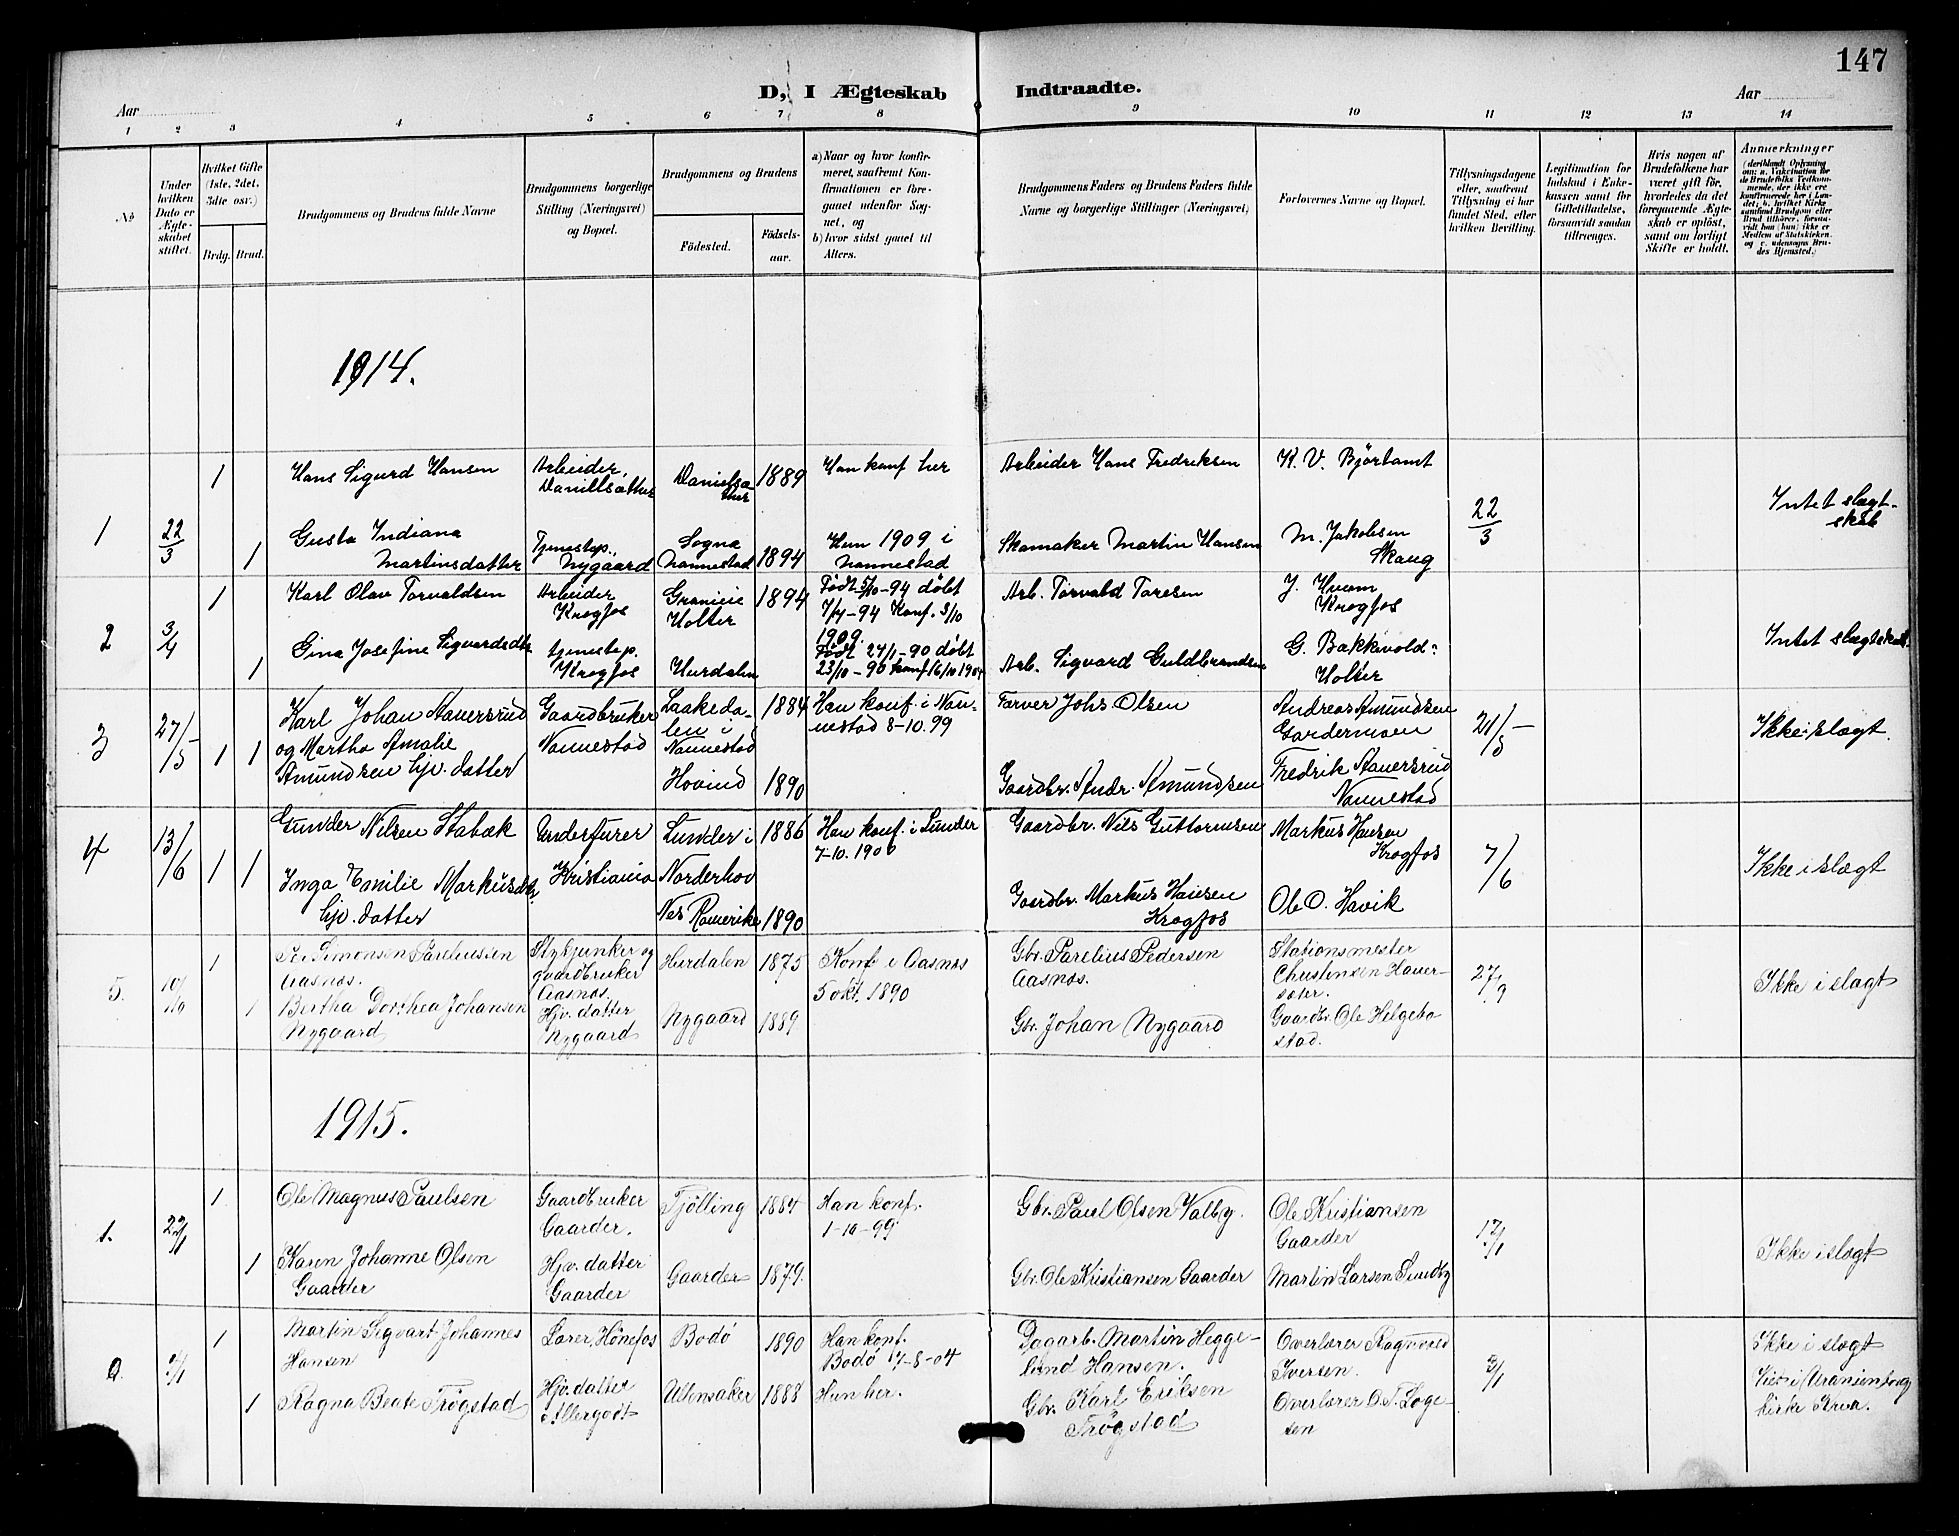 147
D, I Ægteskab Indtraadte.
Aar
Aar
1 2 3 4 5 6 7 8 9 10 11 12 13 14
№
Under hvilken Dato er Ægteskabet stiftet.
Hvilket Gifte (1ste, 2det, 3die osv.)
Brdg. Brud.
Brudgommens og Brudens fulde Navne
Brudgommens borgerlige Stilling (Næringsvei) og Bopæl.
Brudgommens og Brudens
Fødested.
Fødselsaar.
a) Naar og hvor konfirmeret, saafremt Konfirmationen er foregaaet udenfor Sognet, og
b) hvor sidst gaaet til Alters.
Brudgommens Faders og Brudens Faders fulde Navne og borgerlige Stillinger (Næringsvei)
Forlovernes Navne og Bopæl.
Tillysningsdagene eller, saafremt Tillysning ei har fundet Sted, efter hvilken Bevilling.
Legitimation for Indskud i Enkekassen samt for Giftetilladelse, forsaavidt saadan tiltrænges.
Hvis nogen af Brudefolkene har været gift før, hvorledes da det foregaaende Ægteskab er opløst, samt om lovligt Skifte er holdt.
Anmerkninger
(deriblandt Oplysning om: a. Vakcination for de Brudefolks Vedkommende, der ikke ere konfirmerede her i Landet; b. hvilket Kirkesamfund Brudgom eller Brud tilhører, forsaavidt han (hun) ikke er Medlem af Statskirken, og c. udensogns Brudes Hjemsted.)
1914.
1 Hans Sigurd Hansen Arbeider Daniels- 1889 Han konf her Arbeider Hans Fredriksen K. V. Björtamt
Danielsæther æther
1 22/3 Gusta Indiana Tjenestep. Sogna Hun 1909 i Skomaker Martin Hansen M. Jakobsen 22/3 Intet slægt-
1 Martinsdatter Nygaard Nannestad 1894 Nannestad Skaug skab
1 Karl Olav Torvaldsen Arbeider Holter 1894 Født 5/10-94 døbt Arb. Torvald Toresen J. Hveem
Krogfos 7/4-94 Konf. 3/10 Krogfos
2 3/4 1909.
Gina Josefine Sigvardsdtr tjenestep. Født 27/1-90 døbt G. Bakkevold Intet slægtskab
1 Krogfos Hurdalen 23/10-90 konf 16/10 1904 Arb. Sigvard Guldbrandsen Holter
Karl Johan Stauersrud Gaardbruker Laakeda- 1884 Han konf. i Nan- Farver Johs Olsen Andreas Amundsen
3 27/5 1 1 og Martha Amalie Nannestad len i nestad 8-10.99 Gardermoen 21/5 Ikke i slægt.
Amundsen hjv. datter Nannestad Fredrik Stauersrud
Hovind 1890 Gaardbr. Andr. Amundsen Nannestad
Gunder Nilsen Stabæk Lunder i 1886 Han konf. i Lunder Gaardbr. Nils Guttormsen Markus Hansen
4 13/6 1 1 Kristiania Norderhov 7-10.1900 Krogfos 7/6 Ikke i slægt
Inga Emilie Markusdtr. Gaardbr. Markus Hansen
hjv. datter Nes Romerike 1890 Krogfos Ole O. Havik
1 Simonsen Pareliussen Stykjunker og Hurdalen 1875 Konf i Aasnæs Gbr. Parelius Pedersen Stationsmester
5. Aasnæs. gaardbruker 5 okt. 1890 Aasnæs. Christensen Hauer- 27/9 Ikke i slægt
Aasnæs. sæter.
1 Bertha Dorthea Johansen Hjv. datter Nygaard 1889 Gbr. Johan Nygaard Gaardbr. Ole Helgebo-
Nygaard Nygaard stad.
1915.
1 Ole Magnus Paulsen Gaardbruker Tjölling 1884 Han konf. Gbr. Paul Olsen Valby. Ole Kristiansen
Gaarder. 1-10-99 Gaarder
1. 22/1 17/1 Ikke i slægt
1 Karen Johanne Olsen Hjv. datter Gaarder 1879. Gbr. Ole Kristiansen Gaarder Martin Larsen Sundby
Gaarder Gaarder
1 Martin Sigvart Johannes Lærer, Hönefos Bodö 1890 Han konf. Dagarb. Martin Hegge- Overlærer Ragnvald Ikke i slægt
Hansen Bodö 17-8-04 lund Hansen. Iversen. 3/1 Viet i Uranienborg
1 Ragna Beate Trögstad Hjv. datter Ullensaker 1888 Hun her. Gbr. Karl Eriksen Overlærer O. T. kirke Kria.
Trögstad